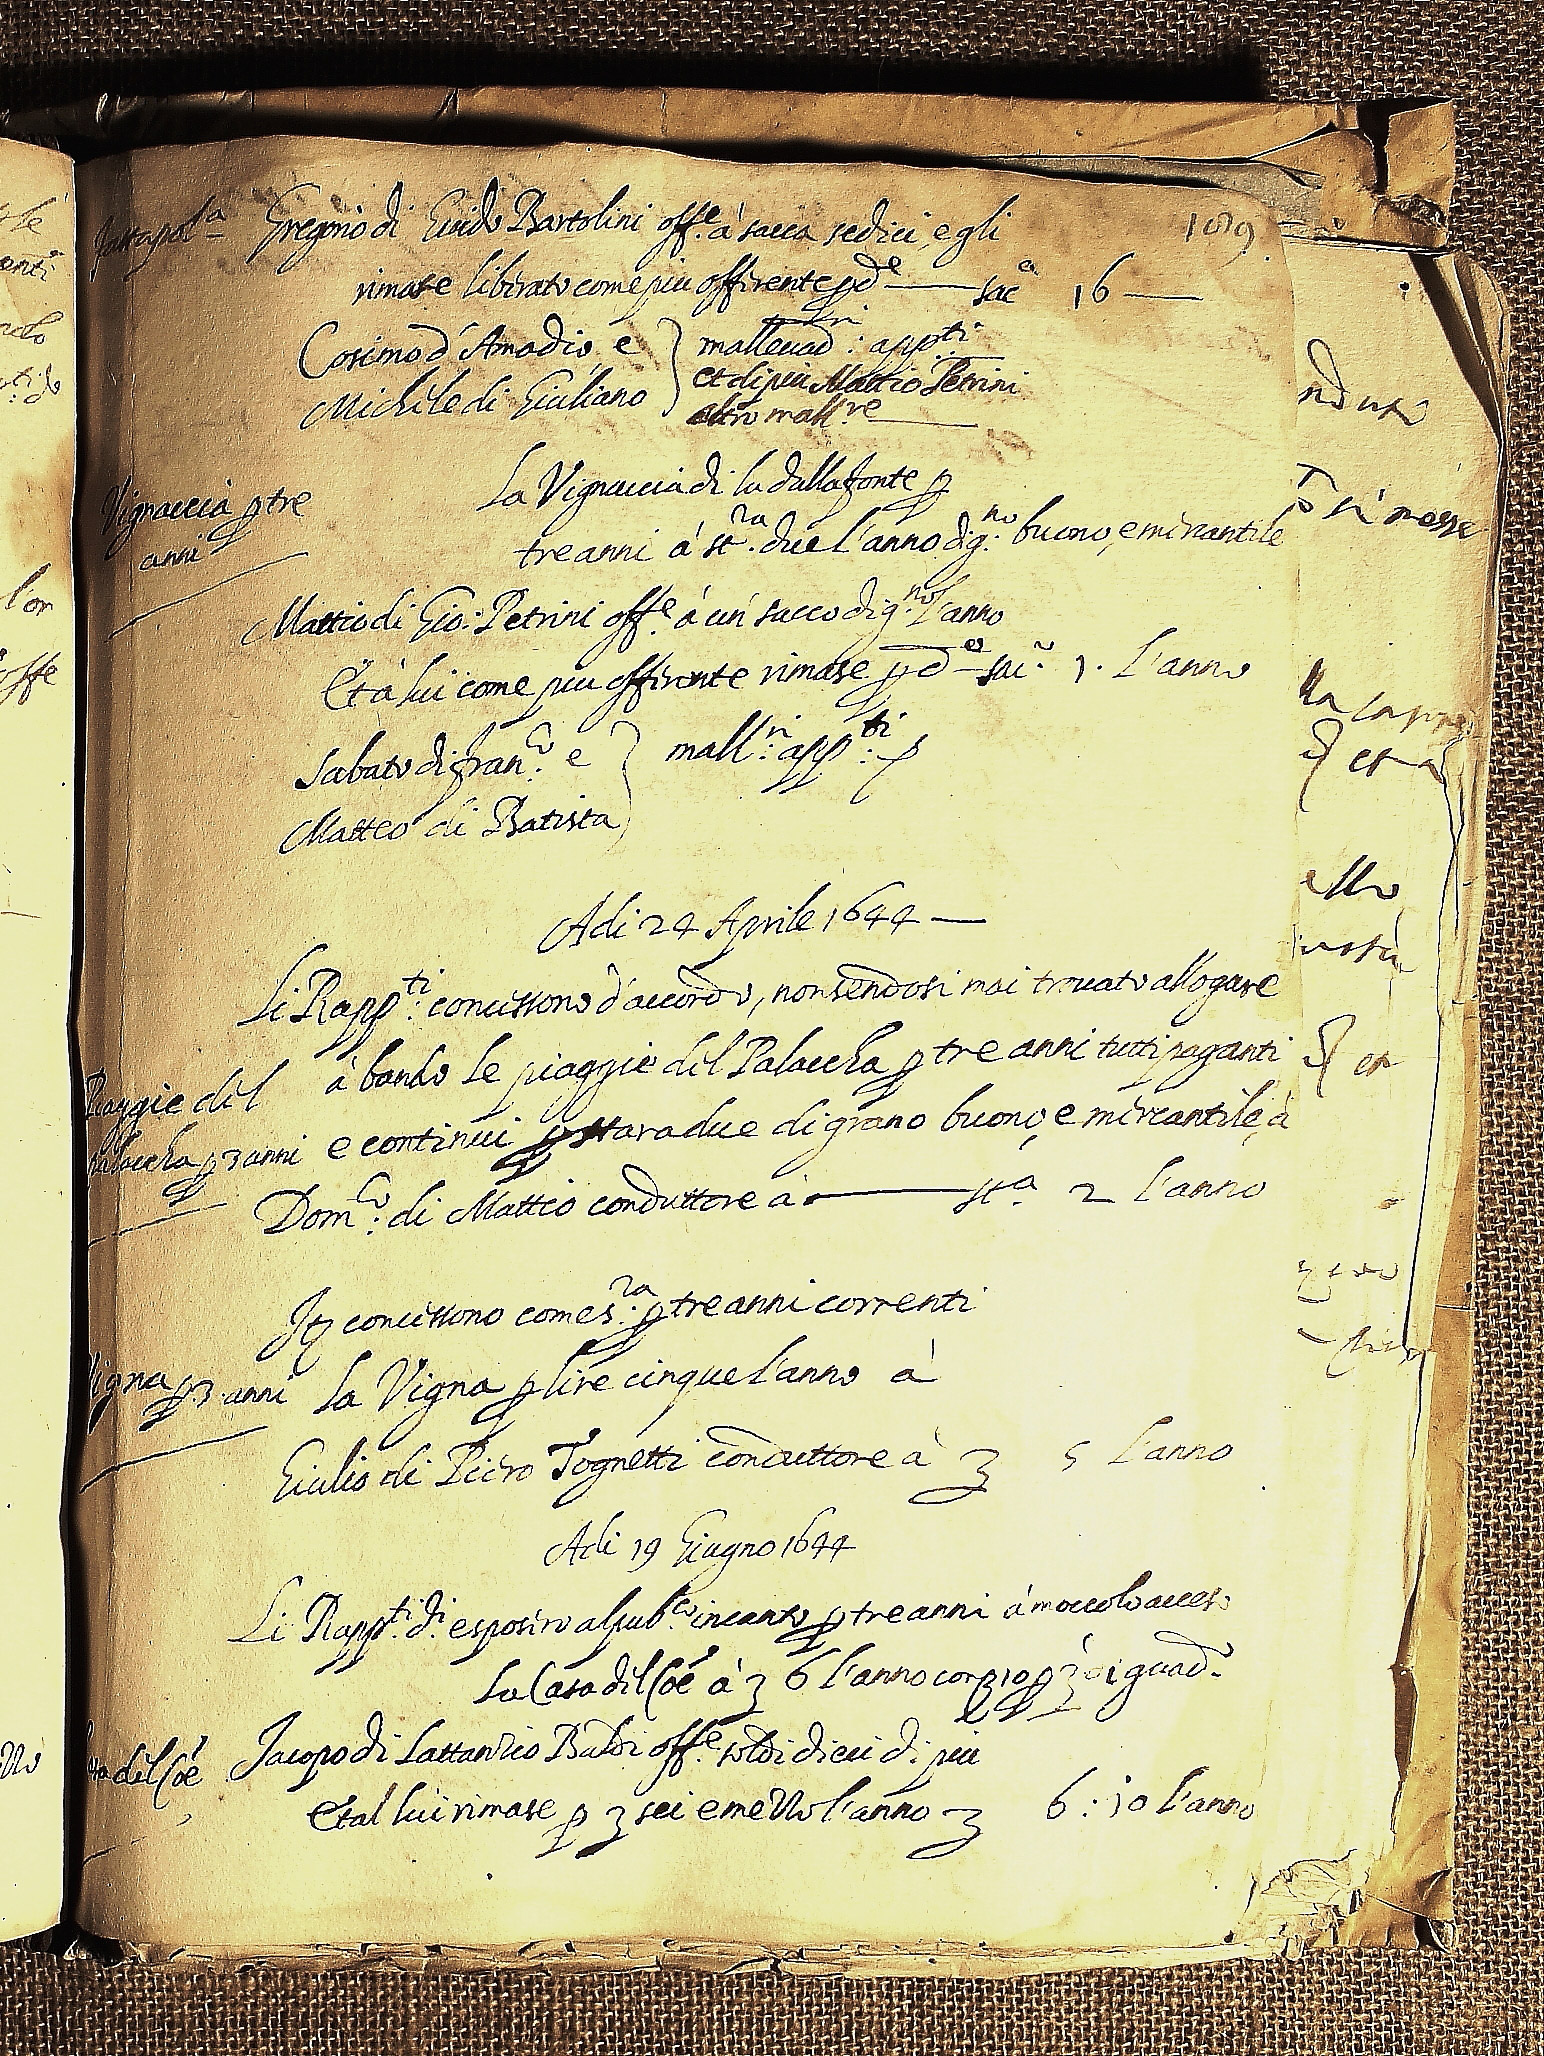 109
Gregorio di Guido Bartolini offe. à sacca sedici, e gli
rimase liberato come piu offerente p de — sac 16 —
Cosimo d'Amadio e } malleuad:ri appti
Michele di Giuliano } et di piu Matteo Petrini
altro mallre
Vignaccia p tre
anni
La Vignaccia di la dalla fonte p
tre anni à stra. due l'anno di g:no buono, e mercantile
Matteo di Gio: Petrini offe. à un' sacco di g:no l'anno
Et à lui come piu offerente rimase p do – sac. 1. l'anno
Sabato di Fran:co e } mall:ri app:ti p
Matteo di Batista }
Adi 24 Aprile 1644 —
Li Rapp:ti concessono d'accordo, non sendosi mai trouato allogare
Piaggie del
Palaccha p 3 anni
à bando le piaggie del Palaccha p tre anni tutti paganti
e continui p stara due di grano buono, e mercantile, à
Dom:co di Matteo conduttore à — sta 2 l'anno
Ite concessono come s:ra p tre anni correnti
Vigna p 3 anni
la Vigna p lire cinque l'anno à
Giulio di Piero Tognetti conduttore à 3 5 l'anno
Adi 19 Giugno 1644
Li Rapp:ti di esposero al pub:co incanto p tre anni à moccolo acceso
La Casa del Coe à 3 6 l'anno con 3 10 p 3 di guad.
del Coe
Jacopo di Lattanzio Baldi offe. soldi dieci di piu
Et al lui rimase p 3 sei e mezzo l'anno 3 6:10 l'anno